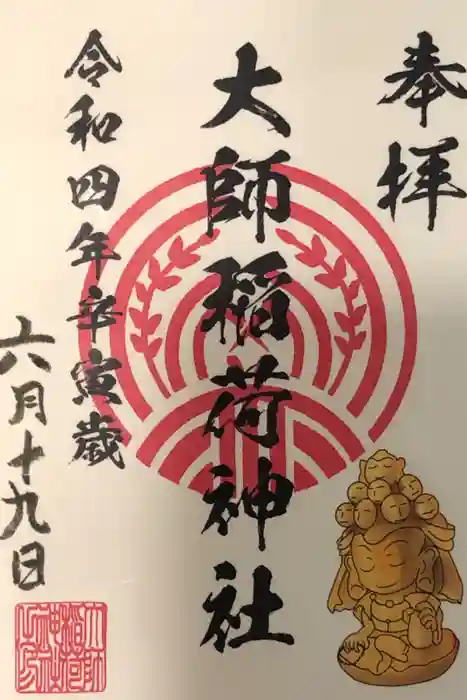 奉拝
大師稲荷神社
令和四年辛寅歳
六月十九日